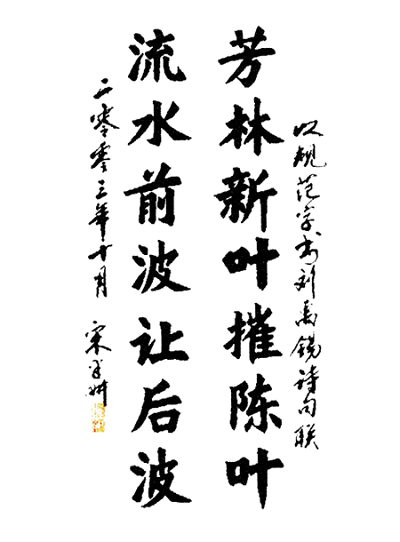 以规范字书刘禹锡诗句联
芳林新叶摧陈叶
流水前波让后波
二零零三年十月 宋